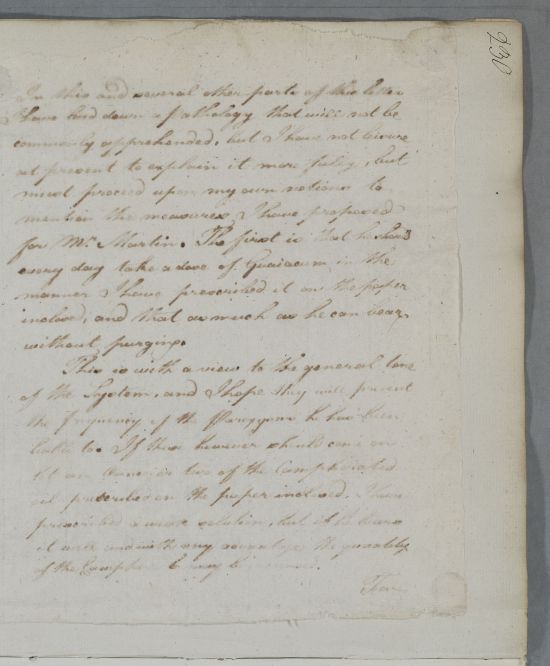 290
In this and several other parts of this letter
I have laid down a Pathology that will not be
commonly apprehended, but I have not leisure
at present to explain it more fully, but
must proceed upon my own notions to
mention the measures I have proposed
for Mr Martin. The first is that he should
every day take a dose of Guaiacum in the
manner I have prescribed it on the paper
inclosed, and that as much as he can bear
without purging.
This is with a view to the general tone
of the System, and I hope they will prevent
the frequency of the Paroxysm he has been
liable to. If these however should come on
let an two of the Camphorated
oil prescribed on the paper inclosed. I have
prescribed a weak solution, but if he bears
it well and with any advantage the quantity
of the Camphor may be